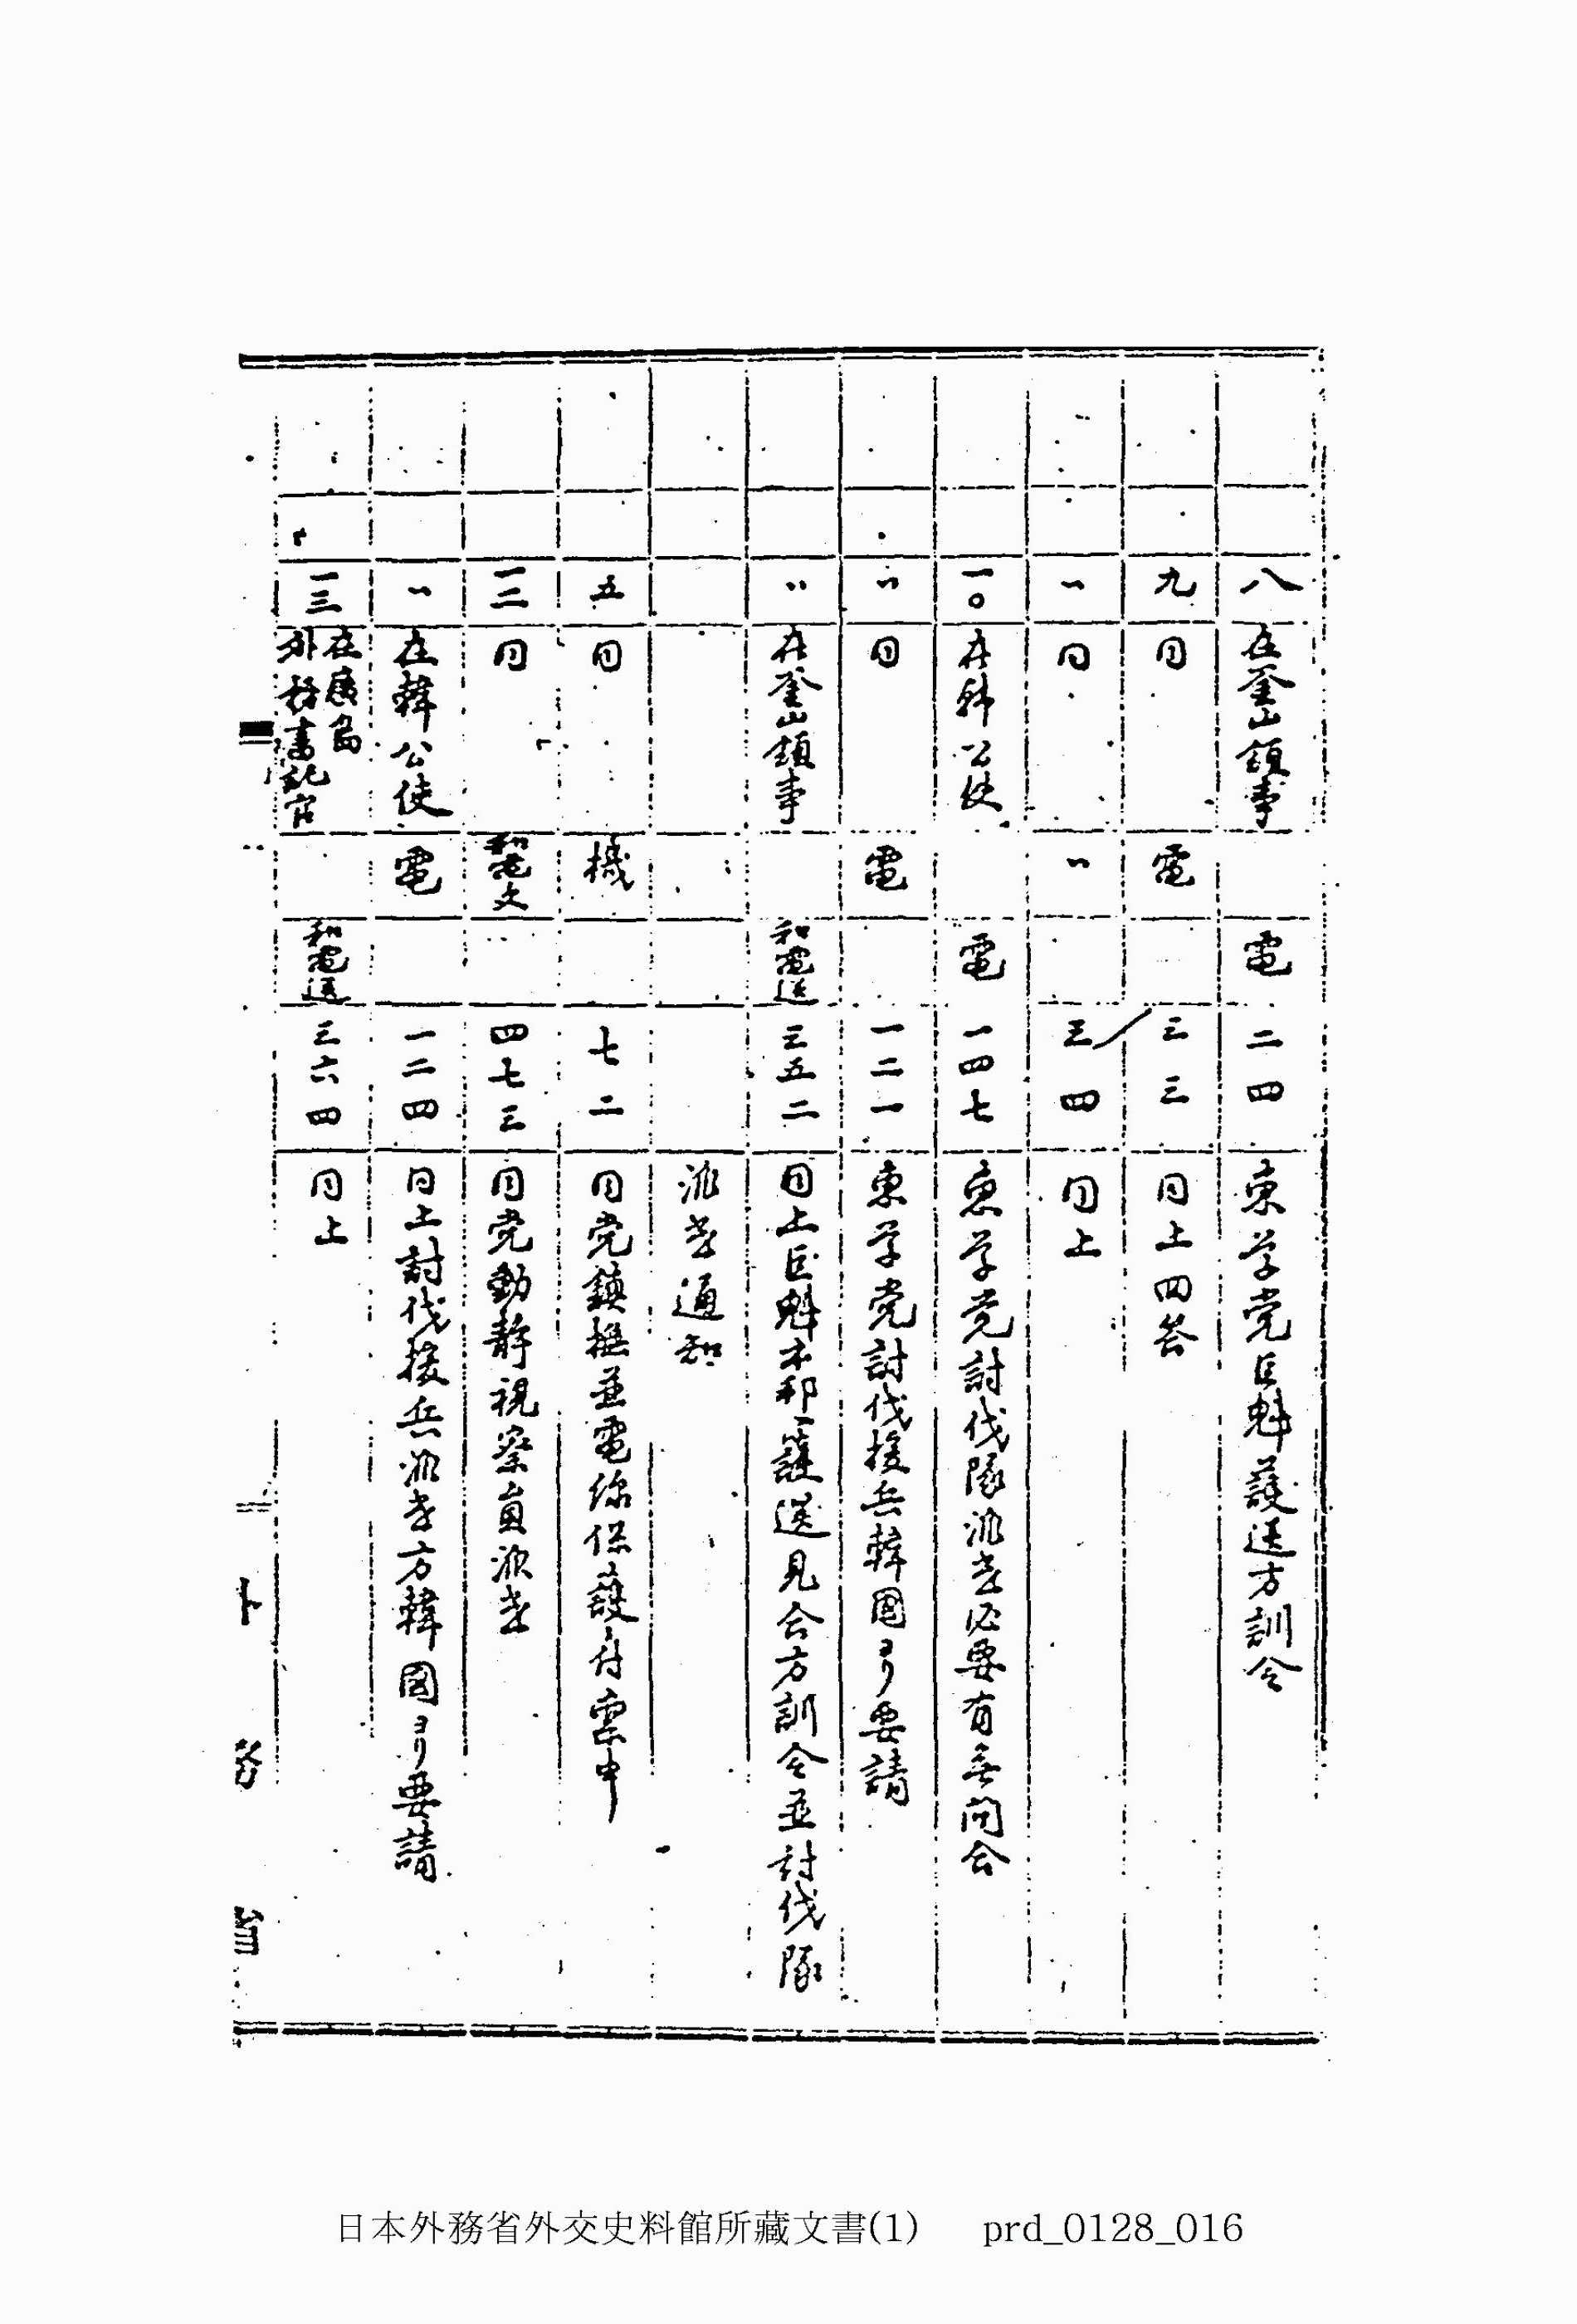 八 在釜山領事 電 二四 東学党巨魁護送方訓令
九 同 電 三三 同上回答
〃 同 〃 三四 同上
一〇 在韓公使 電 一四七 東学党討伐隊派遣必要有無問合
〃 同 電 一二一 東学党討伐援兵韓国ヨリ要請
〃 在釜山領事 和電送 三五二 同上巨魁本邦護送見合方訓令並討伐隊
派遣通知
五 同 機 七二 同党鎮撫並電線保護方稟申
一二 同 和電受 四七三 同党動静視察員派遣
〃 在韓公使 電 一二四 同上討伐援兵派遣方韓國ヨリ要請
一三 在廣島外務書記官 和電送 三六四 同上
日本外務省外交史料館所藏文書(1) prd_0128_016